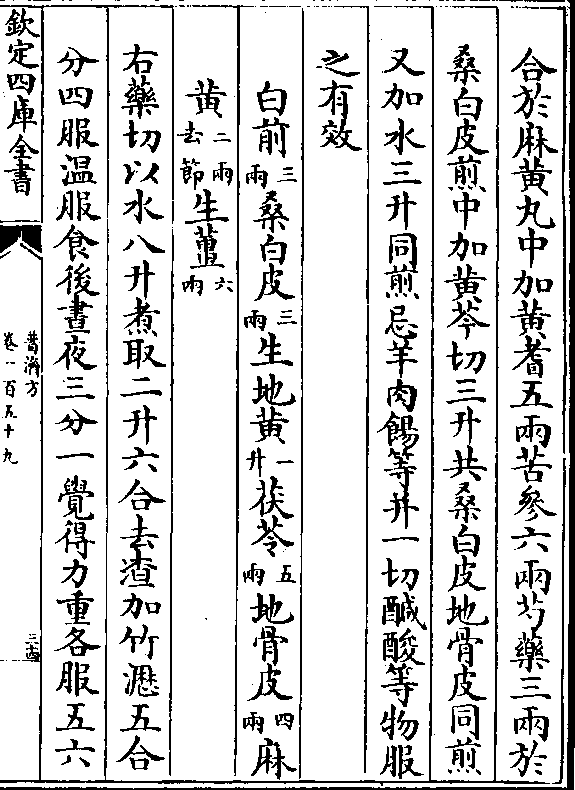 合於麻黄丸中加黄耆五兩苦參六兩芍藥三兩於
桑白皮煎中加黄芩切三升共桑白皮地骨皮同煎
又加水三升同煎忌羊肉餳等并一切醎酸等物服
之有效
白前三兩桑白皮三兩生地黄一升茯苓五兩地骨皮四兩麻
黄二兩去節生薑六兩
右藥切以水八升煮取二升六合去渣加竹瀝五合
分四服温服食後晝夜三分一覺得力重各服五六
欽定四庫全書
普濟方
卷一百五十九
三十四